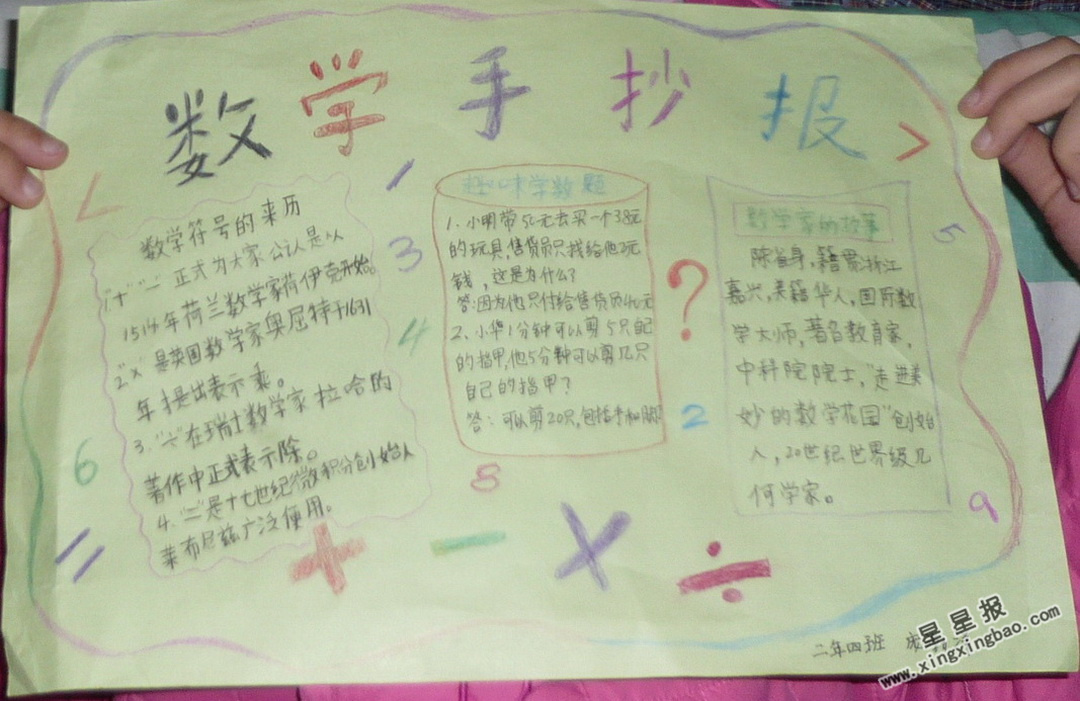 数学手抄报
数学符号的来历
1."+""一"正式为大家公认是从
1514年荷兰数学家荷伊克开始。
2"×"是英国数学家奥屈特于1631
年提出表示乘。
3."÷"在瑞士数学家拉哈的
著作中正式表示除。
4."="是十七世纪微积分创始人
莱布尼兹广泛使用。
趣味学数题
1.小明带50元去买一个38元
的玩具,售货员只找给他2元
钱,这是为什么?
答:因为他只付给售货员40元
2、小华1分钟可以剪5只自己
的指甲,他5分钟可以剪几只
自己的指甲?
答:可以剪20只,包括手和脚
数学家的故事
陈省身,籍贯浙江
嘉兴,美籍华人,国际数
学大师,著名教育家,
中科院院士,"走进美
妙的数学花园"创始
人,20世纪世界级几
何学家。
<
>
/
3
4
5
6
?
2
8
9
=
+
−
×
÷
二年四班
星星报
www.xingxingbao.com